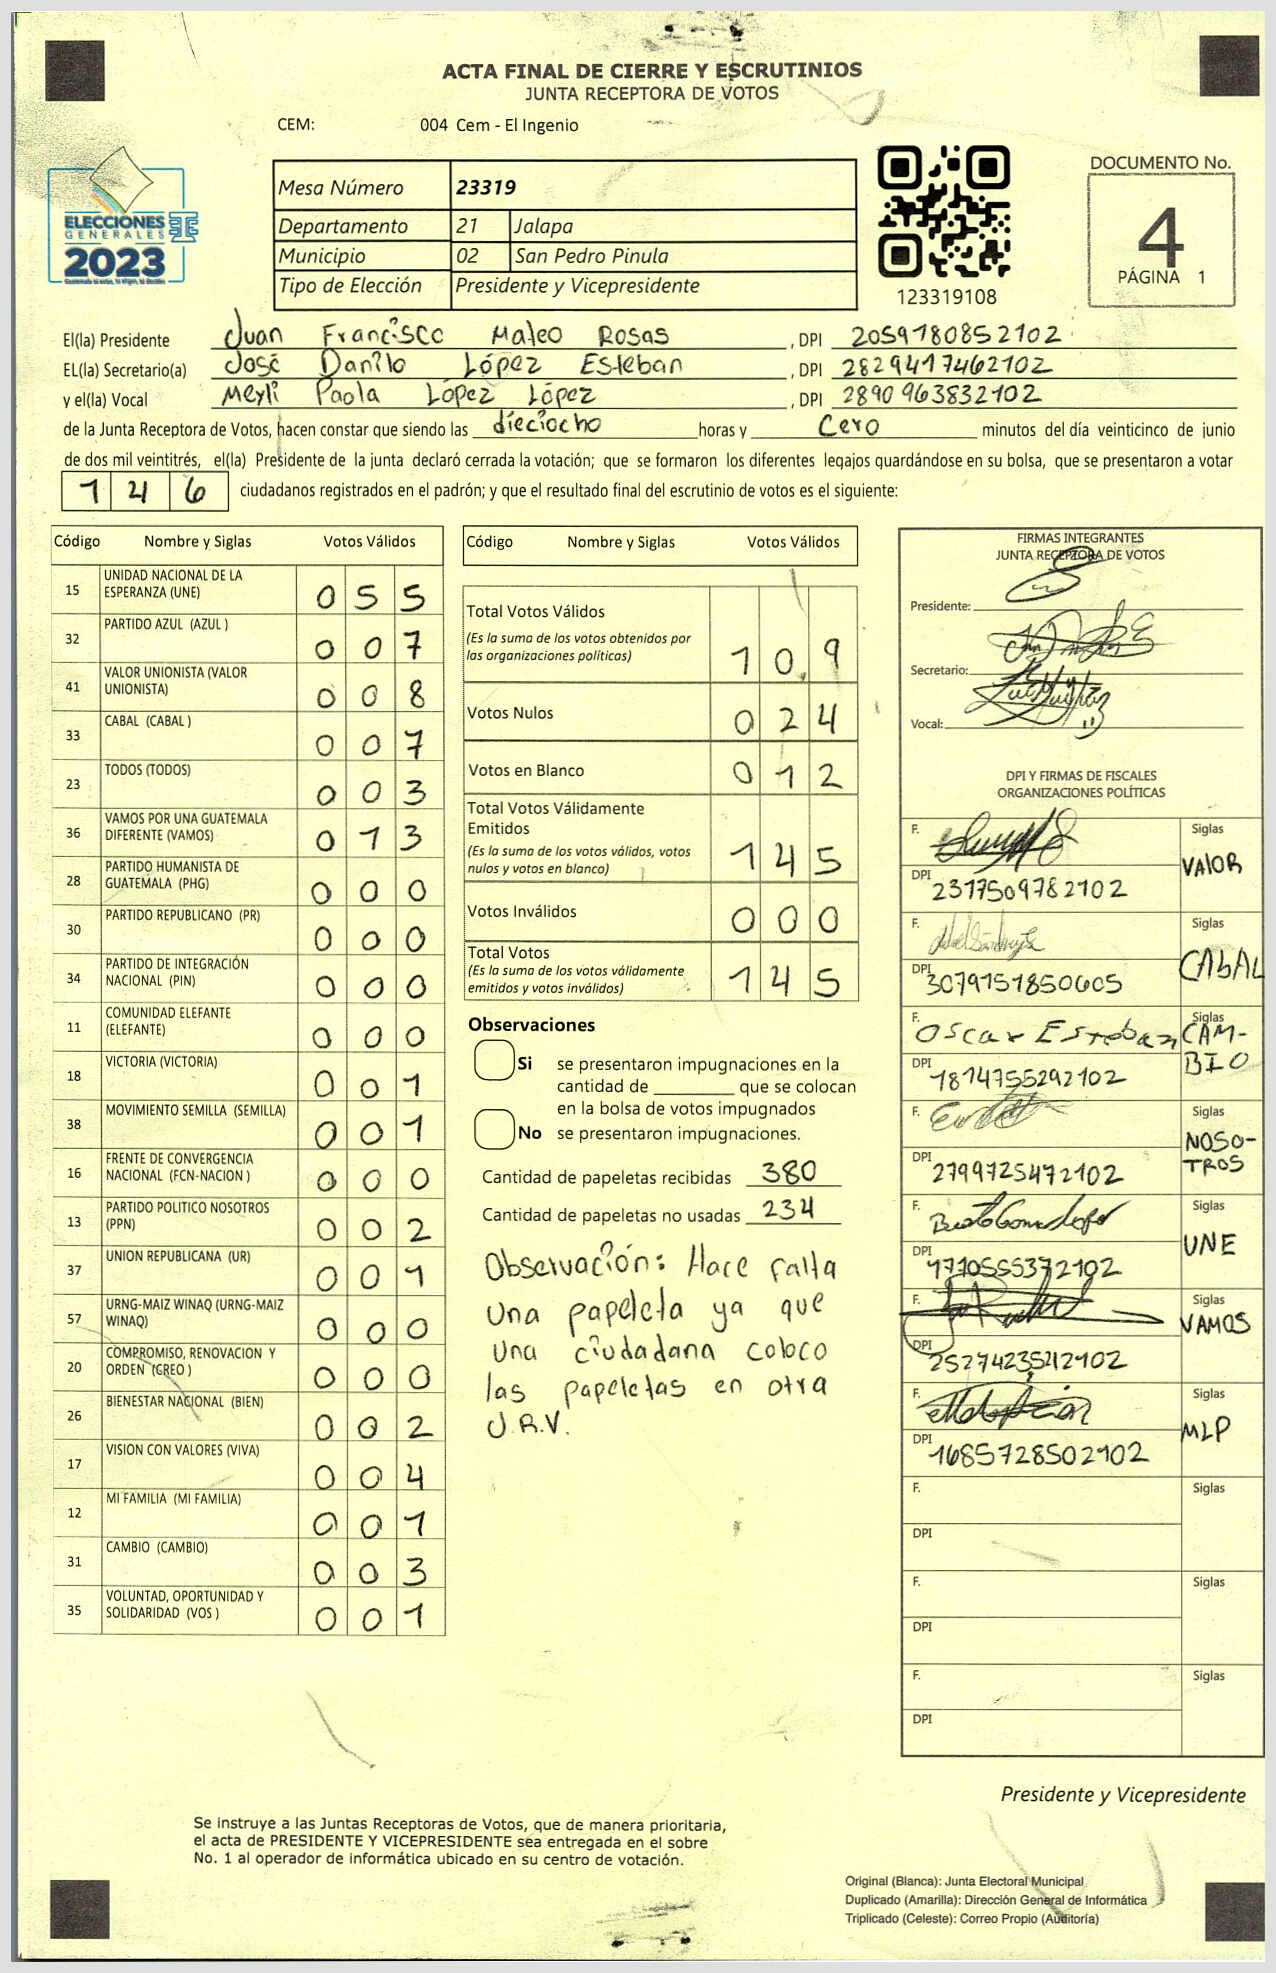 ACTA FINAL DE CIERRE Y ESCRUTINIOS
JUNTA RECEPTORA DE VOTOS
CEM: 004 Cem - El Ingenio
ELECCIONES
GENERALES
2023
Mesa Número 23319
Departamento 21 Jalapa
Municipio 02 San Pedro Pinula
Tipo de Elección Presidente y Vicepresidente
123319108
DOCUMENTO No.
4
PÁGINA 1
El(la) Presidente Juan Francisco Mateo Rosas , DPI 2059780852102
EL(la) Secretario(a) José Danilo López Esteban , DPI 2829417462102
y el(la) Vocal Meyli Paola López López , DPI 2890963832102
de la Junta Receptora de Votos, hacen constar que siendo las dieciocho horas y Cero minutos del día veinticinco de junio
de dos mil veintitrés, el(la) Presidente de la junta declaró cerrada la votación; que se formaron los diferentes legajos guardándose en su bolsa, que se presentaron a votar
1 4 6 ciudadanos registrados en el padrón; y que el resultado final del escrutinio de votos es el siguiente:
Código Nombre y Siglas Votos Válidos
15 UNIDAD NACIONAL DE LA ESPERANZA (UNE) 0 5 5
32 PARTIDO AZUL (AZUL ) 0 0 7
41 VALOR UNIONISTA (VALOR UNIONISTA) 0 0 8
33 CABAL (CABAL ) 0 0 7
23 TODOS (TODOS) 0 0 3
36 VAMOS POR UNA GUATEMALA DIFERENTE (VAMOS) 0 1 3
28 PARTIDO HUMANISTA DE GUATEMALA (PHG) 0 0 0
30 PARTIDO REPUBLICANO (PR) 0 0 0
34 PARTIDO DE INTEGRACIÓN NACIONAL (PIN) 0 0 0
11 COMUNIDAD ELEFANTE (ELEFANTE) 0 0 0
18 VICTORIA (VICTORIA) 0 0 1
38 MOVIMIENTO SEMILLA (SEMILLA) 0 0 1
16 FRENTE DE CONVERGENCIA NACIONAL (FCN-NACION ) 0 0 0
13 PARTIDO POLITICO NOSOTROS (PPN) 0 0 2
37 UNION REPUBLICANA (UR) 0 0 1
57 URNG-MAIZ WINAQ (URNG-MAIZ WINAQ) 0 0 0
20 COMPROMISO, RENOVACION Y ORDEN (CREO ) 0 0 0
26 BIENESTAR NACIONAL (BIEN) 0 0 2
17 VISION CON VALORES (VIVA) 0 0 4
12 MI FAMILIA (MI FAMILIA) 0 0 1
31 CAMBIO (CAMBIO) 0 0 3
35 VOLUNTAD, OPORTUNIDAD Y SOLIDARIDAD (VOS ) 0 0 1
Código Nombre y Siglas Votos Válidos
Total Votos Válidos
(Es la suma de los votos obtenidos por las organizaciones políticas) 1 0 9
Votos Nulos 0 2 4
Votos en Blanco 0 1 2
Total Votos Válidamente Emitidos
(Es la suma de los votos válidos, votos nulos y votos en blanco) 1 4 5
Votos Inválidos 0 0 0
Total Votos
(Es la suma de los votos válidamente emitidos y votos inválidos) 1 4 5
Observaciones
Si se presentaron impugnaciones en la
cantidad de ________ que se colocan
en la bolsa de votos impugnados
No se presentaron impugnaciones.
Cantidad de papeletas recibidas 380
Cantidad de papeletas no usadas 234
Observación: Hace falta
una papeleta ya que
una ciudadana coloco
las papeletas en otra
J.R.V.
FIRMAS INTEGRANTES
JUNTA RECEPTORA DE VOTOS
Presidente:
Secretario:
Vocal:
DPI Y FIRMAS DE FISCALES
ORGANIZACIONES POLÍTICAS
F. Siglas VALOR
DPI 2317509782102
F. Siglas CABAL
DPI 3079151850605
F. Oscar Esteban Siglas CAM-
BIO
DPI 1814755292102
F. Siglas NOSO-
TROS
DPI 2799725472102
F. Siglas UNE
DPI 1710555372102
F. Siglas VAMOS
DPI 2527423542102
F. Siglas MLP
DPI 1685728502102
F. Siglas
DPI
F. Siglas
DPI
F. Siglas
DPI
Presidente y Vicepresidente
Se instruye a las Juntas Receptoras de Votos, que de manera prioritaria,
el acta de PRESIDENTE Y VICEPRESIDENTE sea entregada en el sobre
No. 1 al operador de informática ubicado en su centro de votación.
Original (Blanca): Junta Electoral Municipal
Duplicado (Amarilla): Dirección General de Informática
Triplicado (Celeste): Correo Propio (Auditoría)